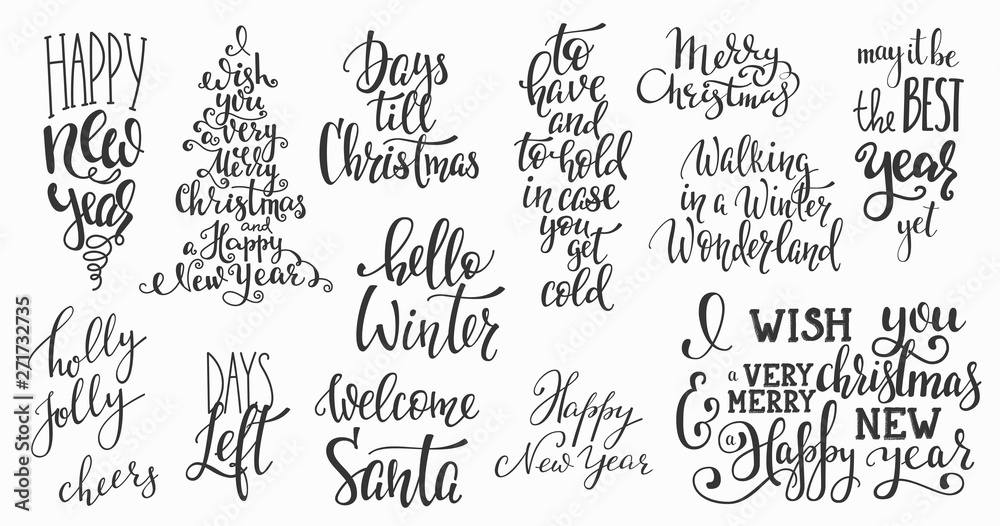 HAPPY
new
year
I
wish
you
a very
Merry
Christmas
and
a Happy
New Year
Days
till
Christmas
to
have
and
to hold
in case
you
get
cold
Merry
Christmas
may it be
the BEST
year
yet
hello
Winter
Walking
in a Winter
Wonderland
holly
jolly
cheers
DAYS
Left
Welcome
Santa
Happy
New Year
I WISH you
a VERY
MERRY christmas
& a Happy NEW
year
Adobe Stock | #271732735
Adobe Stock